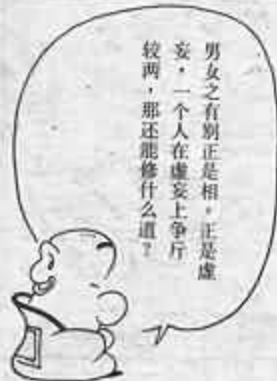 男女之有别正是相，正是虚
妄，一个人在虚妄上争斤
较两，那还能修什么道？